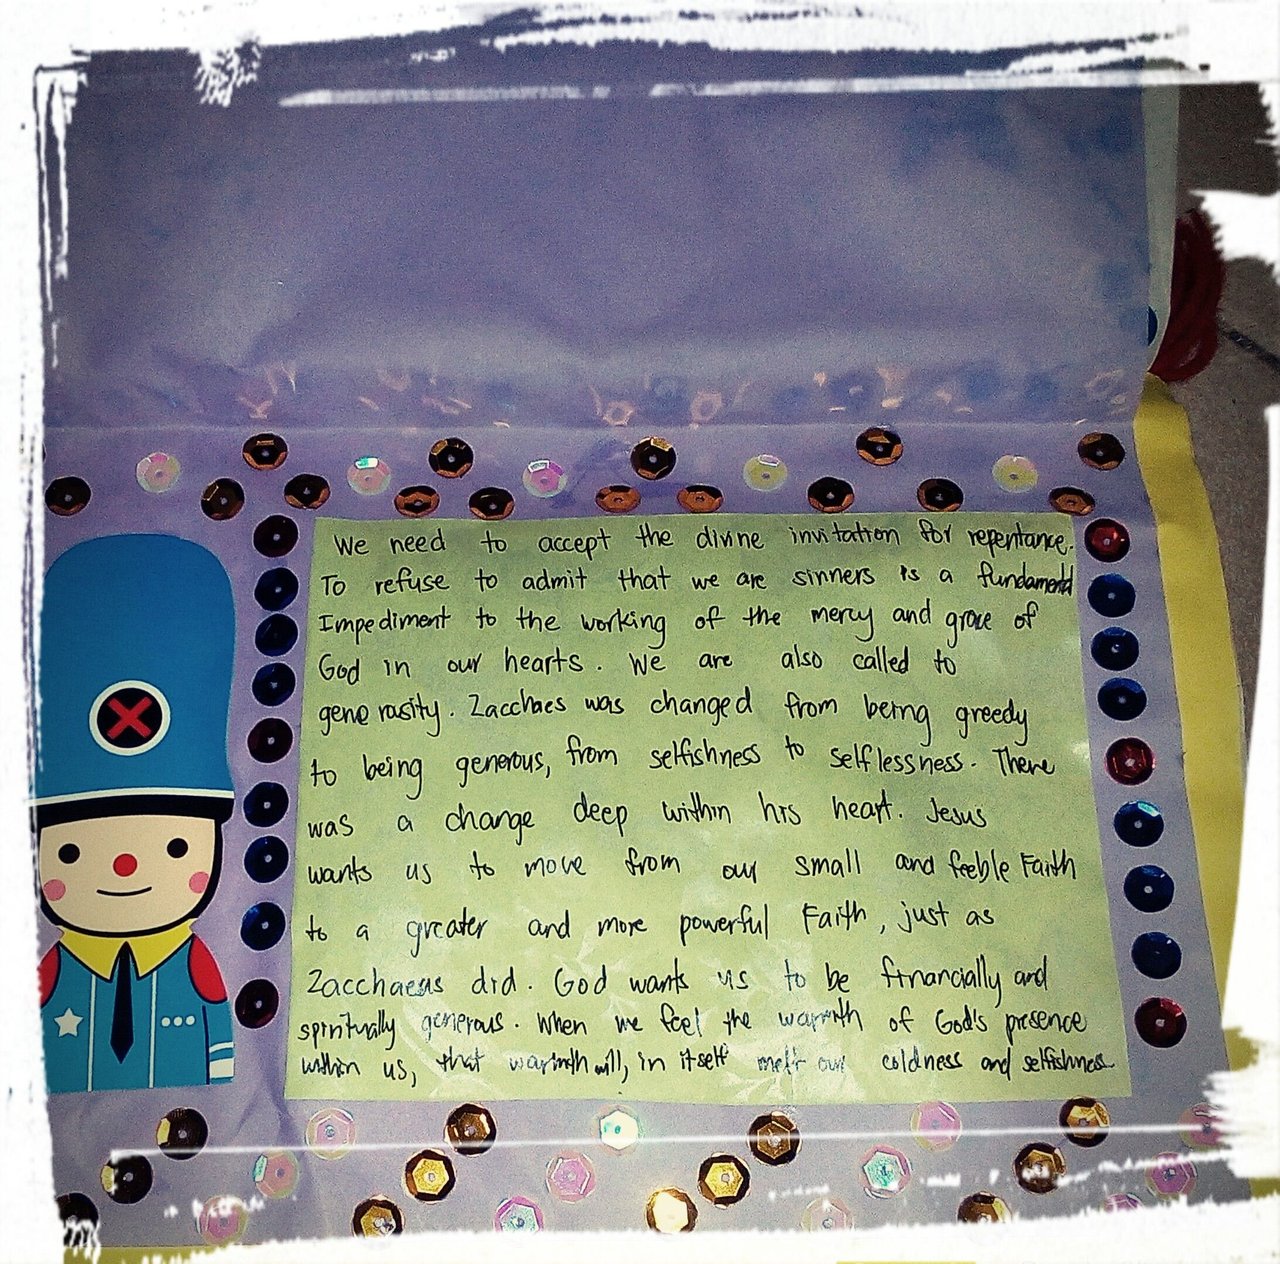 We need to accept the divine invitation for repentance.
To refuse to admit that we are sinners is a fundamental
Impediment to the working of the mercy and grace of
God in our hearts. We are also called to
generosity. Zacchaes was changed from being greedy
to being generous, from selfishness to selflessness. There
was a change deep within his heart. Jesus
wants us to move from our small and feeble Faith
to a greater and more powerful Faith, just as
Zacchaeus did. God wants us to be financially and
spiritually generous. When we feel the warmth of God's presence
within us, that warmth will, in itself melt our coldness and selfishness